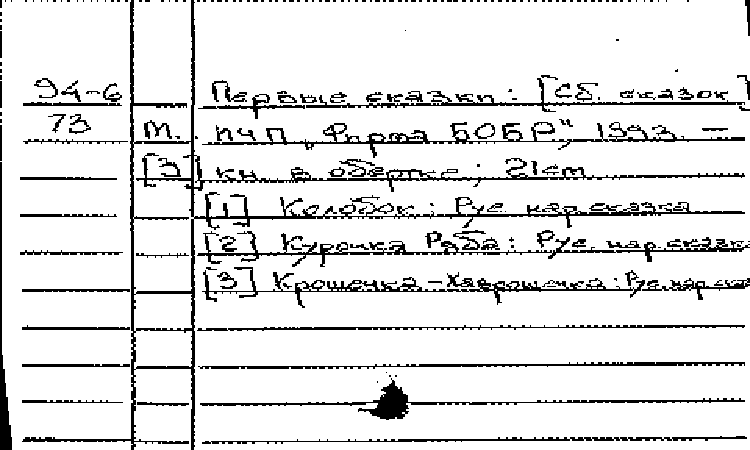 94-6 Первые сказки: [Сб. сказок]
73 М.: ПЧП „Фирма БОБР“, 1993. —
[3] кн. в обертке; 21см
[1] Колобок: Рус. нар. сказка
[2] Курочка Ряба: Рус. нар. сказка
[3] Крошечка-Хаврошечка: Рус. нар. ска